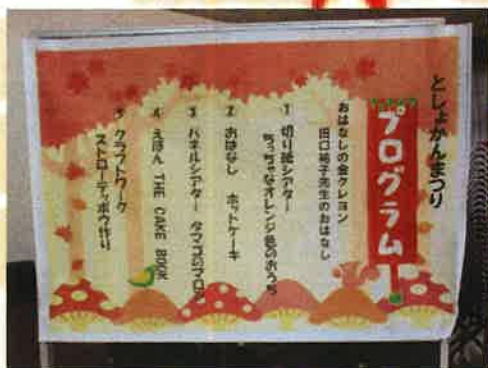 としょかんまつり
プログラム!
おはなしの会クレヨン
田口裕子先生のおはなし
1 切り紙シアター
ちっちゃなオレンジ色のおうち
2 おはなし ホットケーキ
3 パネルシアター タマゴのマロン
4 えほん THE CAKE BOOK
5 クラフトワーク
ストローテッポウ作り